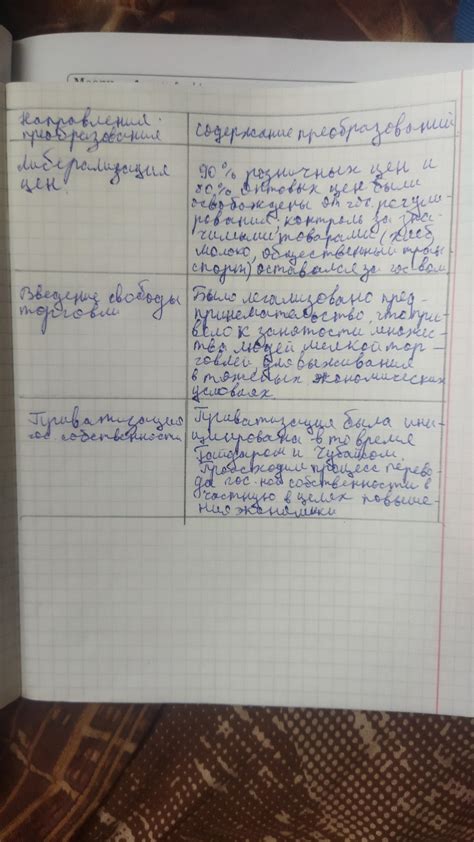 Направления преобразования
Содержание преобразований
Либерализация
цен.
90% розничных цен и
80% оптовых цен были
освобождены от гос. регули-
рования контроль за зна-
чимыми товарами (хлеб
молоко, общественный тран-
спорт) оставался за гос-вом
Введение свободы
торговли
Было легализовано пред-
принимательство, что при-
вело к занятости множес-
тва людей мелкой тор-
говлей для выживания
в тяжёлых экономических
условиях.
Приватизация
гос. собственности
Приватизация была ини-
циирована в то время
Гайдаром и Чубайсом.
Происходил процесс перево-
да гос-ной собственности в
частную в целях повыше-
ния экономики